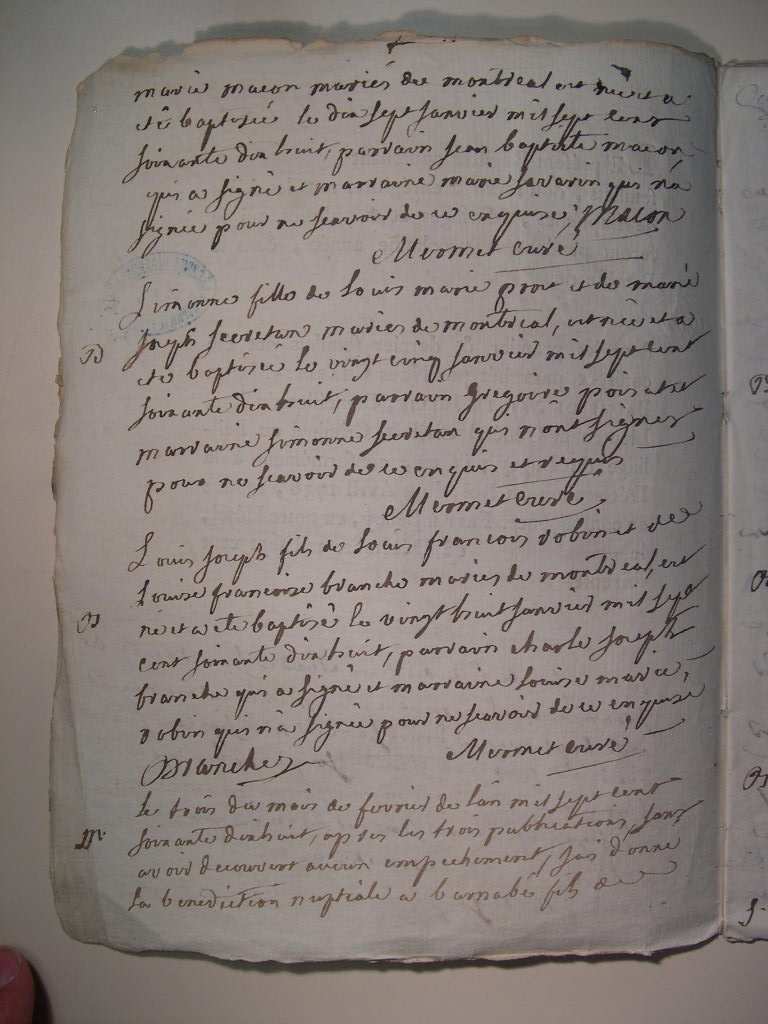 marie macon mariés de montreal est née et a
eté baptisée le dix sept janvier mil sept cent
soixante dix huit, parrain jean baptiste macon,
qui a signé et marraine marie savarin qui n'a
signée pour ne scavoir de ce enquise, Macon
Mermet curé
Simonne fille de Louis marie prost et de marie
B
joseph secretan mariés de montreal, est née et a
eté baptisée le vingt cinq janvier mil sept cent
soixante dix huit, parrain gregoire et
marraine simonne secretan qui n'ont signes
pour ne scavoir de ce enquis et requis
Mermet curé
Louis joseph fils de Louis francois robin et de
Louise francoise branche mariés de montreal, est
B
né et a eté baptisé le vingt huit janvier mil sept
cent soixante dix huit, parrain charle joseph
branche qui a signé et marraine Louise marie,
robin qui n'a signée pour ne scavoir de ce enquise
Branche Mermet curé
Le trois du mois de fevrier de l'an mil sept cent
M.
soixante dix huit, apres les trois publications, sans
avoir decouvert aucun empechement, j'ai donné
la benediction nuptiale a barnabé fils de